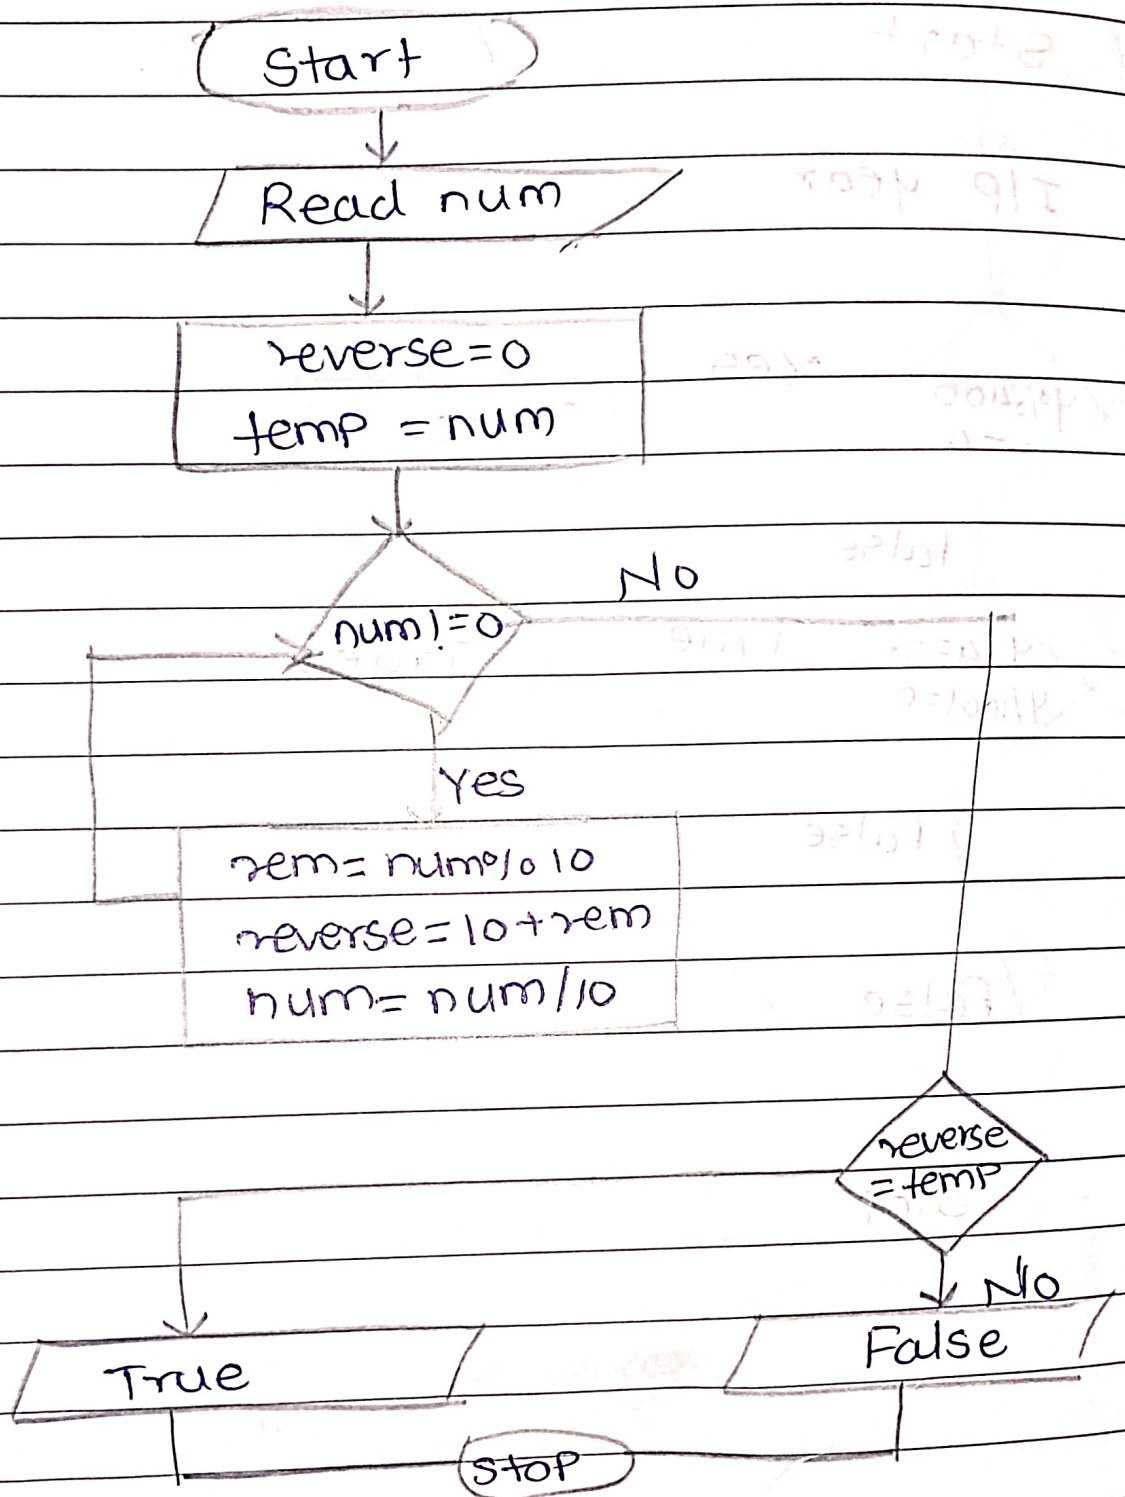 Start
Read num
reverse=0
temp = num
No
num!=0
Yes
rem= num%10
reverse=10+rem
num= num//10
reverse
=temp
No
False
True
Stop